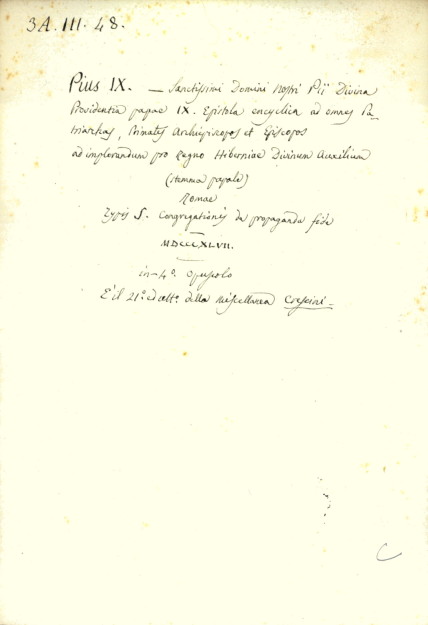 3A. III. 48.
Pius IX. — Sanctissimi Domini Nostri Pii Divina
Providentia papae IX. Epistola encyclica ad omnes Pa-
triarchas, Primates Archiepiscopos et Episcopos
ad implorandum pro Regno Hiberniae Divinum Auxilium
(stemma papale)
Romae
Typis S. Congregationis de propaganda fide
MDCCCXLVII.
in-4º. Opuscolo
È il 21º ed ultº. della Miscellanea
C